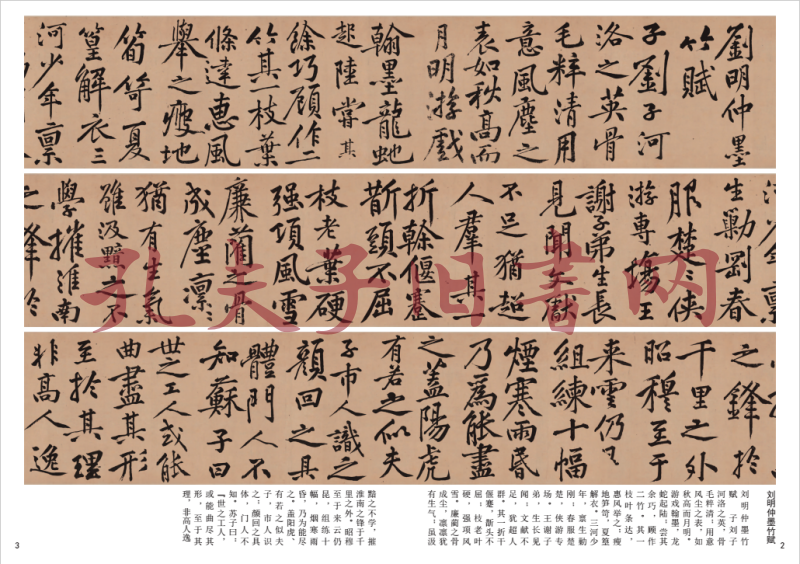 劉明仲墨
竹賦
子劉子河
洛之英骨
毛粹清用
意風塵之
表如秋高而
月明游戲
翰墨龍虵
起陸嘗其
餘巧顧作二
竹其一枝葉
條達惠風
舉之瘦地
筍笴夏
篁解衣三
河少年稟
河少年稟
生勦剛春
服楚々俠
游專場王
謝子弟生長
見聞文獻
不足猶超
人羣其一
折榦偃蹇
斮頭不屈
枝老葉硬
强項風雪
廉藺之骨
成塵凛々
猶有生氣
雖汲黯之不
學摧淮南
之鋒於
之鋒於
千里之外
昭穆至于
来雲仍乃
組練十幅
煙寒雨昏
乃為能盡
之蓋陽虎
有若之似夫
子市人識之
顔回之具
體門人不
知蘇子曰
世之工人或能
曲盡其形
至於其理
非高人逸
刘明仲墨竹赋
刘明仲墨竹
赋 子刘子
河洛之英,骨
毛粹清;用意
风尘之表,如
秋高而月明。
游戏翰墨,龙
蛇起陆;尝其
余巧,顾作
二竹。其一
枝叶条达,
惠风举之;瘦
地笋笴,夏篁
解衣。三河少
年,禀生勦
刚;春服楚
楚,侠游专
场。王谢子
弟,生长见
闻;文献不
足,犹超人
群。其一折干
偃蹇,斮头不
屈;枝老叶
硬,强项风
雪。廉蔺之骨
成尘,凛凛犹
有生气!虽汲
黯之不学,摧
淮南之锋于千
里之外。昭穆
至于来云仍
昆,组练十
幅,烟寒雨
昏,乃为能尽
之。盖阳虎、
有若之似夫
子,市人识
之,颜回之具
体,门人不
知。苏子曰:
『世之工人,
或能曲尽其
形,至于其
理,非高人逸
2
3
孔夫子旧书网